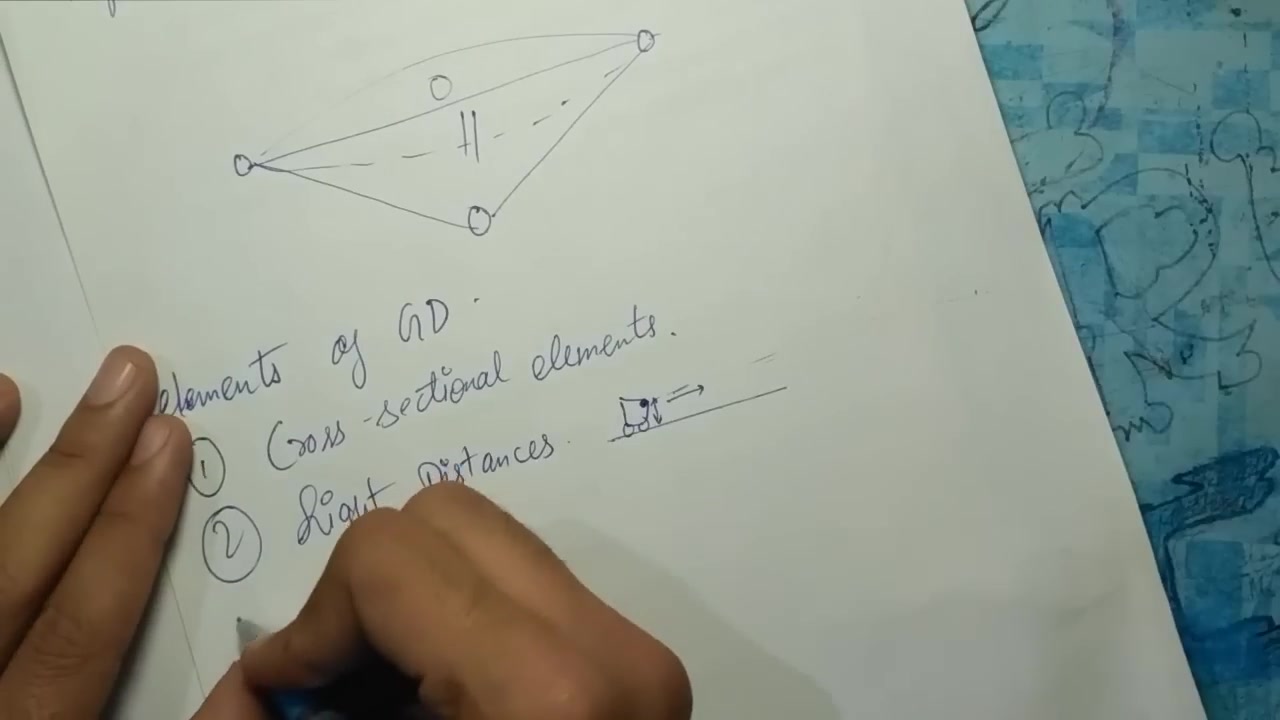 elements of GD.
① Cross-sectional elements.
② Sight Distances.